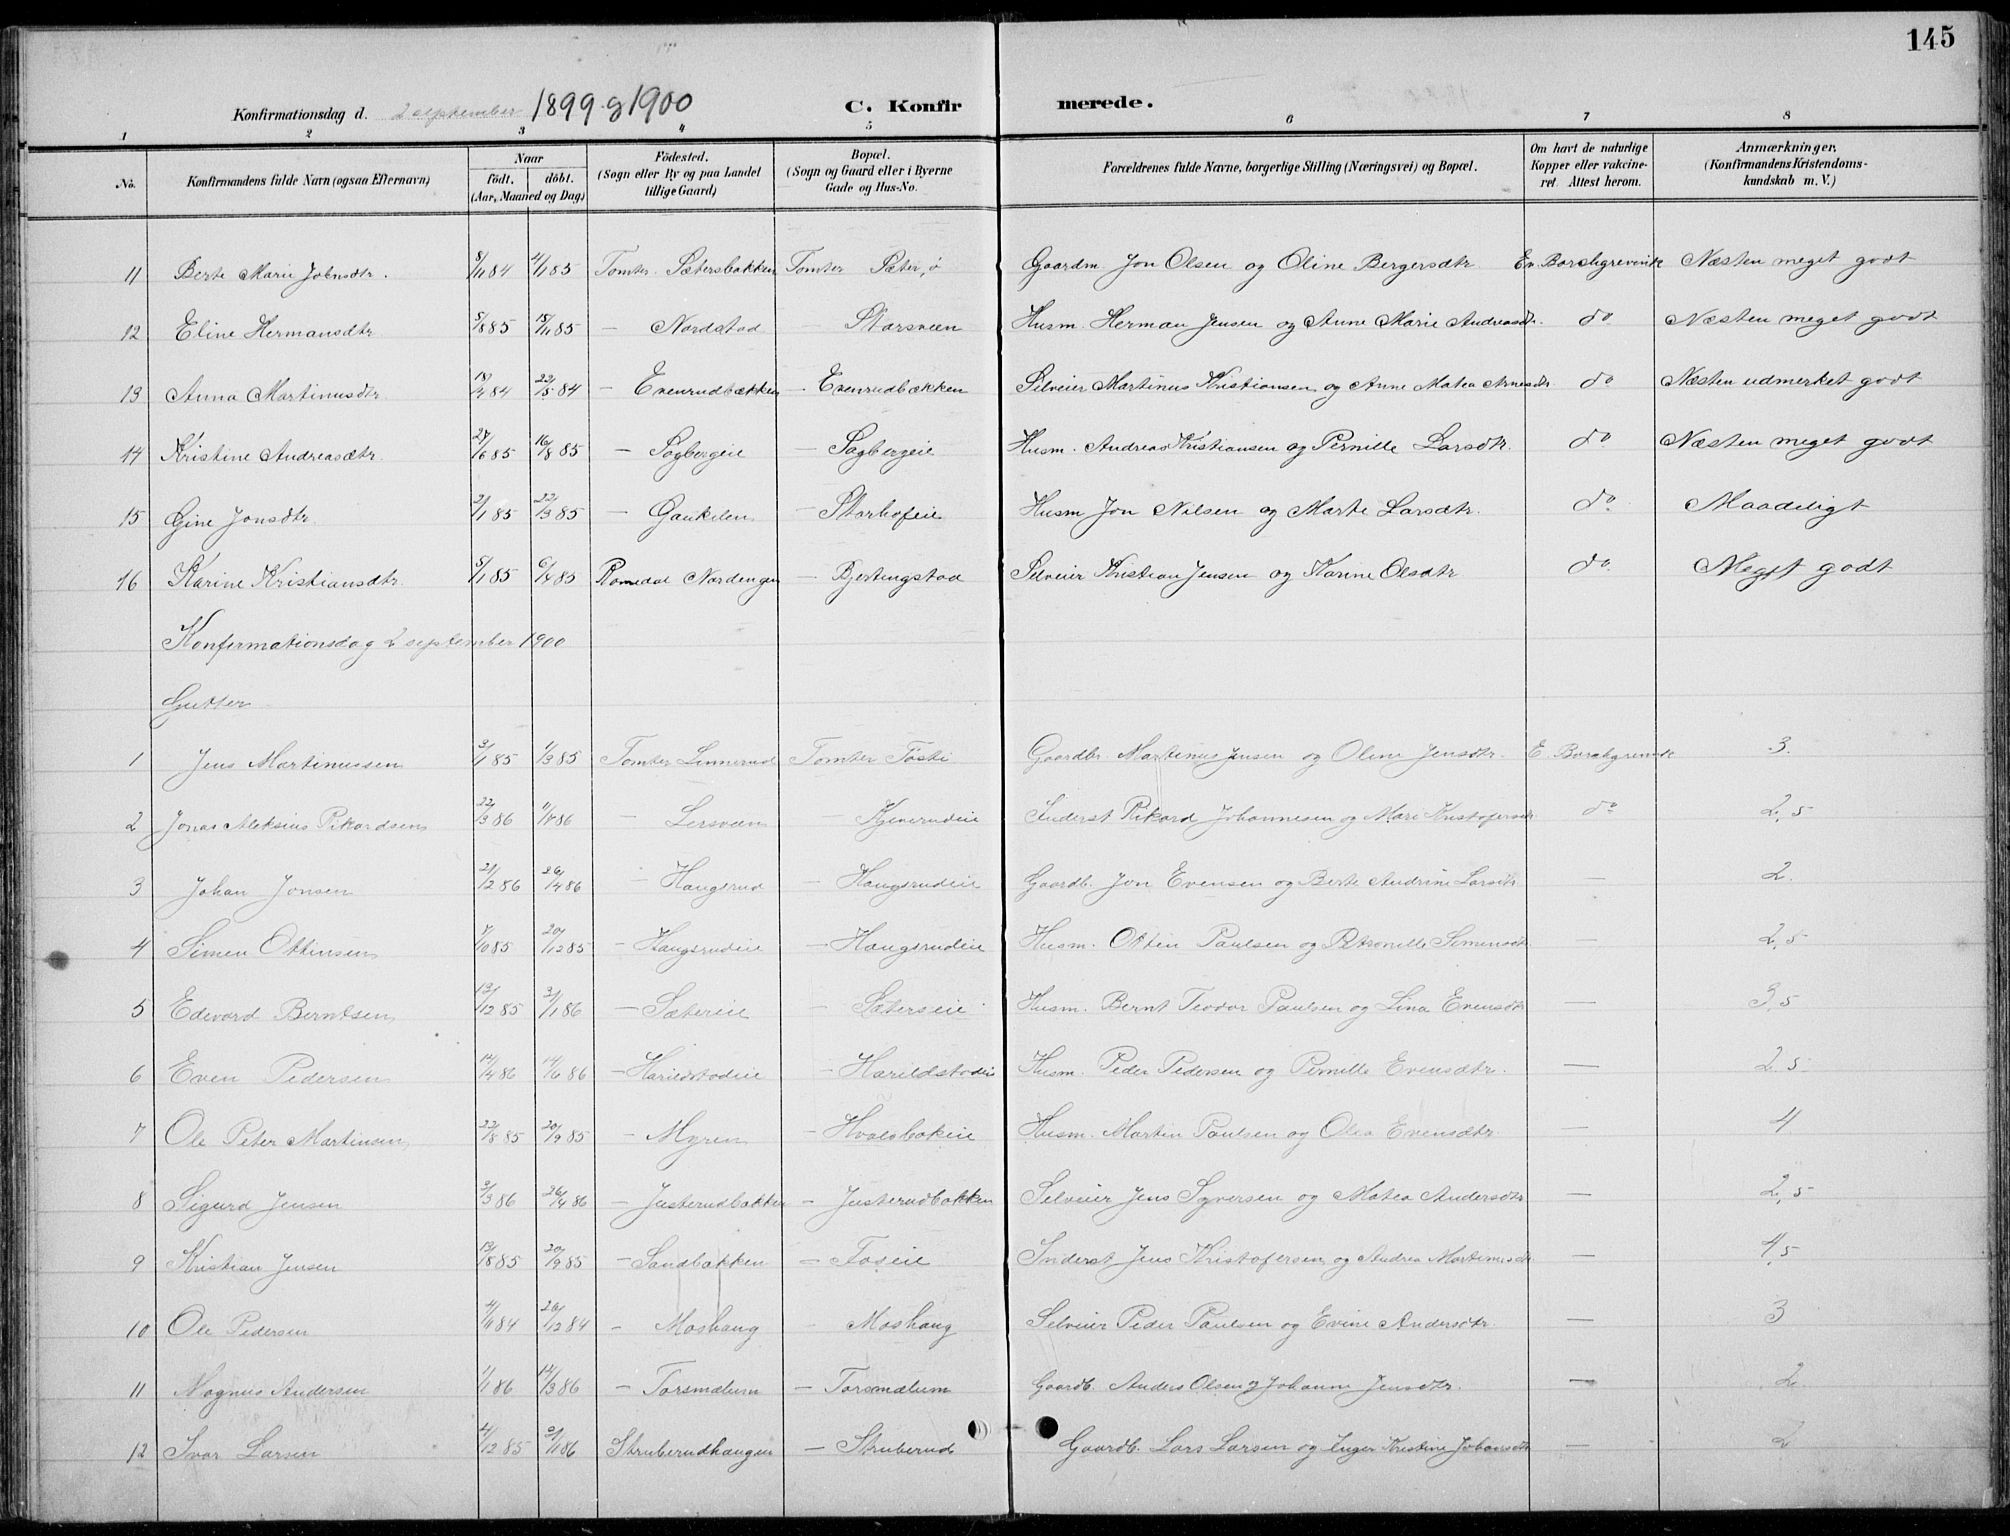 145
Konfirmationsdag d. 2 september 1899 og 1900 C. Konfirmerede.
1 2 3 4 5 6 7 8
No. Konfirmandens fulde Navn (ogsaa Efternavn) Naar födt. döbt. (Aar, Maaned og Dag) Födested. (Sogn eller By og paa Landet tillige Gaard) Bopæl. (Sogn og Gaard eller i Byerne Gade og Hus-No. Forældrenes fulde Navne, borgerlige Stilling (Næringsvei) og Bopæl. Om havt de naturlige Kopper eller vakcineret. Attest herom. Anmærkninger. (Konfirmandens Kristendomskundskab m. V.)
11 Berte Marie Johnsdtr. 8/11 84 4/1 85 Tomter Sætersbakken Tomter Sæter, ø Gaardm Jon Olsen og Oline Bergersdtr. Ev. Borchgrevink Næsten meget godt
12 Eline Hermansdtr. 5/8 85 15/11 85 — Nordstad — Starsveen Husm. Herman Jensen og Anne Marie Andreasdtr. do Næsten meget godt
13 Anna Martinusdtr. 84 22/5 84 — Evenrudbækken — Evenrudbækken Selveier Martinus Kristiansen og Anne Matea Arnesdtr do Næsten udmerket godt
14 Kristine Andreasdtr. 27/6 85 16/8 85 — Sagbergeie — Sagbergeie Husm. Andreas Kristiansen og Pernille Larsdtr. do Næsten meget godt
15 Gine Jonsdtr. 2/1 85 22/3 85 — Gaukelen — Starhofeie Husm Jon Nilsen og Marte Larsdtr. do. Maadeligt
16 Karine Kristiansdtr. 5/1 85 6/4 85 Romedal Nordengen — Bjertingstad Selveier Kristian Jensen og Karine Olsdtr do. Meget godt
Konfirmationsdag 2 september 1900
Gutter
1 Jens Martinussen 3/1 85 1/3 85 Tomter Linnerud Tomter Tösti Gaardbr. Martinus Jensen og Oline Jensdtr. E. Borchgrevink 3.
2 Jonas Aleksius Rikardsen 22/3 86 11/4 86 — Lersveen — Kjenerudeie Inderst Rikard Johannesen og Mari Kristofersdtr. do 2,5
3 Johan Jonsen 21/2 86 26/4 86 — Haugsrud — Haugsrudeie Gaardb. Jon Evensen og Berte Andrine Larsdtr — 2.
4 Simen Ottinsen 7/10 85 20/12 85 — Haugsrudeie — Haugsrudeie Husm. Ottin Paulsen og Petronille Simensdtr — 2,5
5 Edvard Berntsen 13/12 85 3/1 86 — Sætereie — Sæterseie Husm. Bernt Teodor Paulsen og Lina Evensdtr — 3,5
6 Even Pedersen 12/4 86 14/6 86 — Harildstadeie — Harildstadeie Husm. Peder Pedersen og Pernille Evensdtr. — 2 5
7 Ole Peter Martinsen 22/8 85 20/9 85 — Myren — Hvalsbakeie Husm. Martin Paulsen og Olea Evensdtr. — 4
8 Sigurd Jensen 3/3 86 26/4 86 — Justerudbakken — Justerudbakken Selveier Jens Syversen og Matea Andersdtr — 2,5
9 Kristian Jensen 13/8 85 20/9 85 — Sandbakken — Foseie Inderst Jens Kristofersen og Andrea Martinusdtr. — 4,5
10 Ole Pedersen 4/11 84 26/12 84 — Moshaug — Moshaug Selveier Peder Paulsen og Evine Andersdtr. — 3
11 Magnus Andersen 1/1 86 14/3 86 — Torsmælum — Torsmælum Gaardb. Anders Olsen og Johanne Jensdtr. — 2
12 Ivar Larsen 4/12 85 2/1 86 Struberudhaugen — Struberud Gaardb. Lars Larsen og Inger Kristine Johansdtr — 2